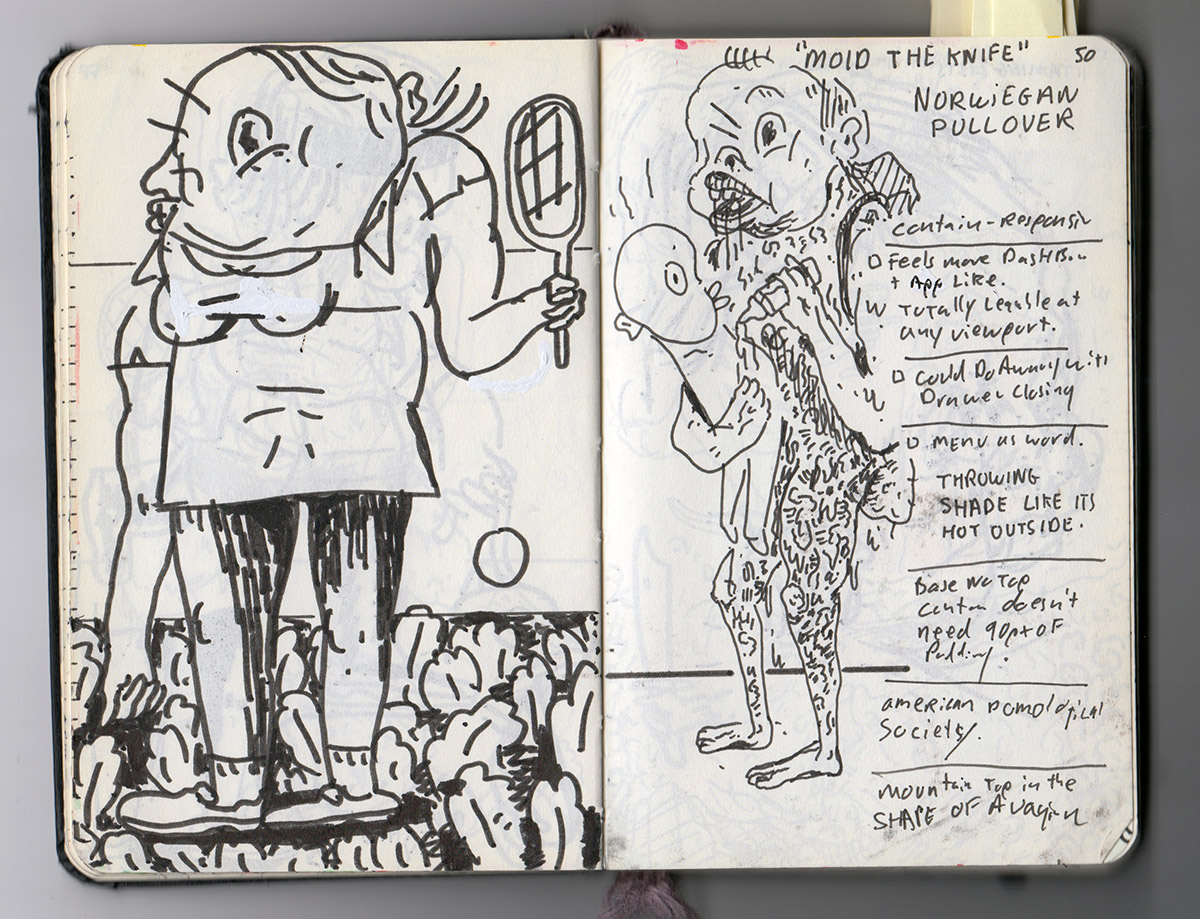 "MOLD THE KNIFE"
50
NORWIEGAN
PULLOVER
contain-responsiv
Feels more DasHBou
+ App Like.
Totally Legable at
any viewport.
Could Do Away with
Drawer Closing
MENU as word.
THROWING
SHADE LIKE ITS
HOT OUTSIDE.
Base No Top
doesn't
need 90pt OF
Padding.
american pomological
Society.
mountain Top in the
SHAPE OF A vagina